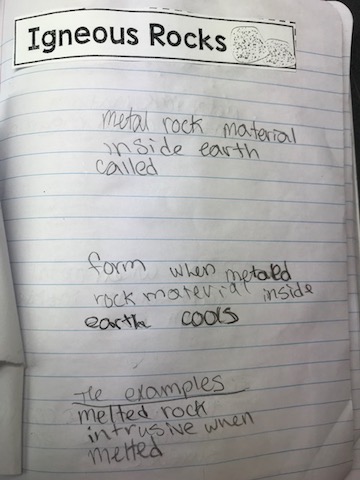 Igneous Rocks
metal rock material
inside earth
called
form when metaled
rock material inside
earth cools
The examples
melted rock
intrusive when
melted